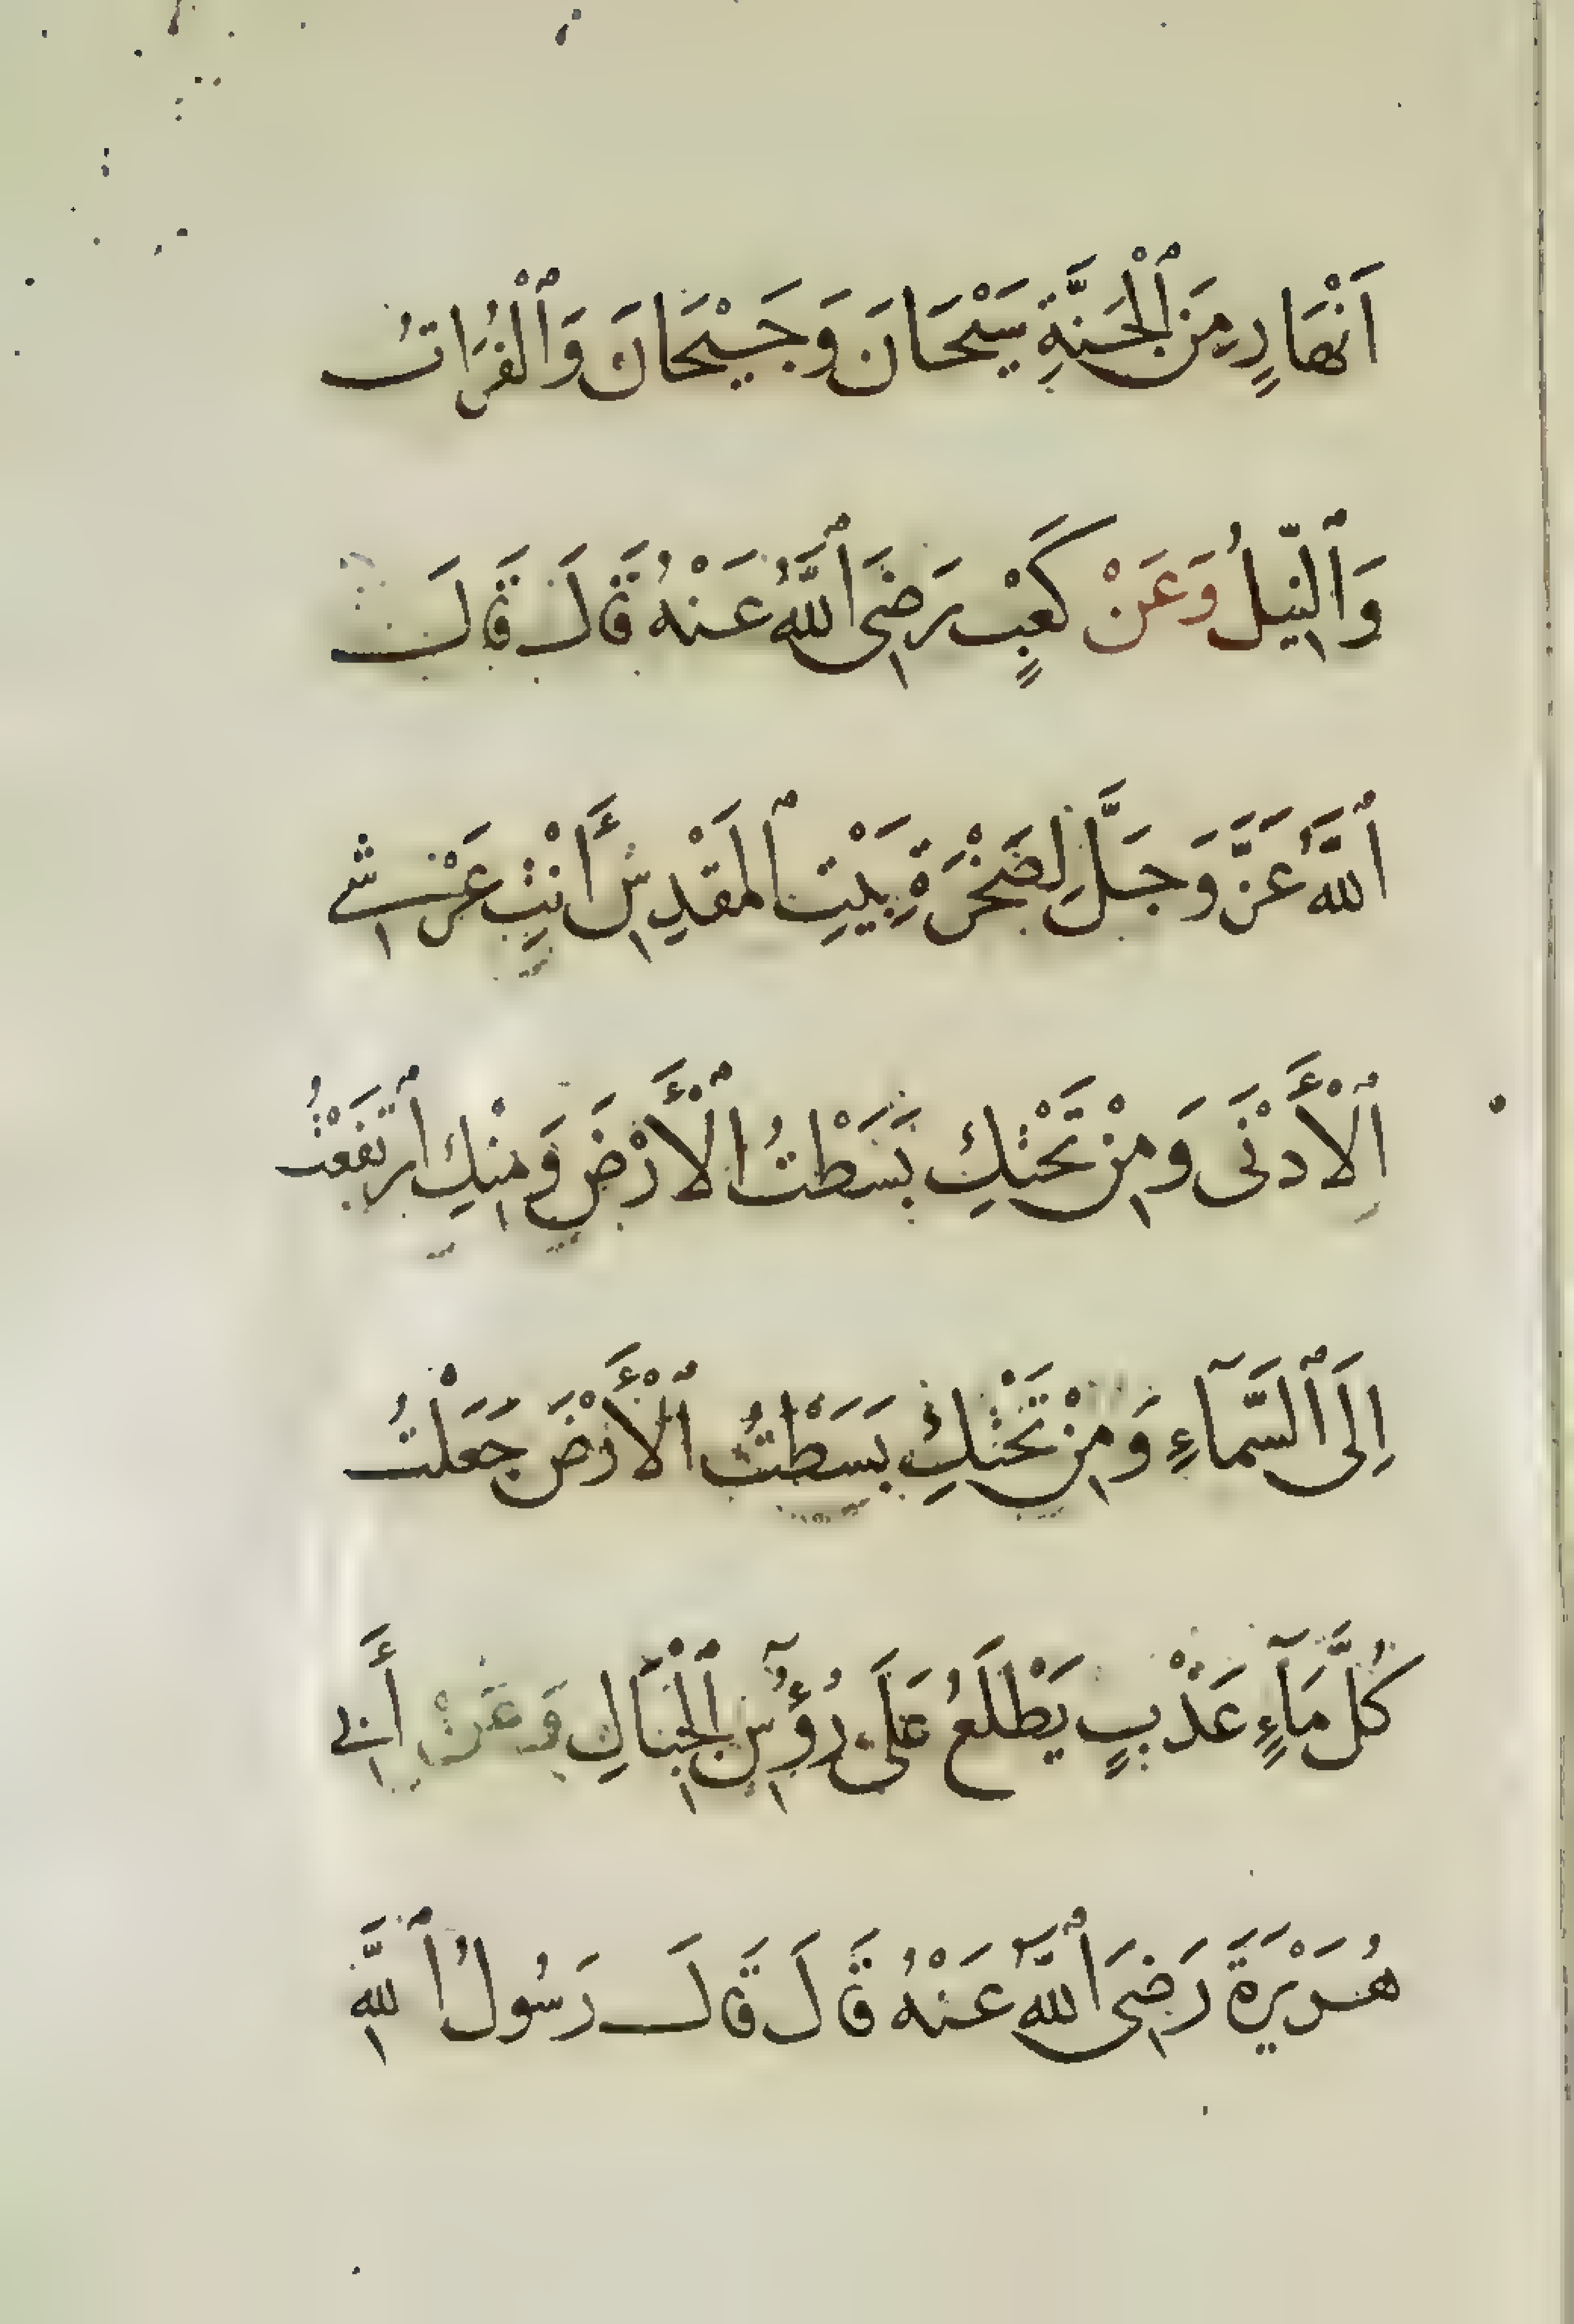 اَنْهَارٍ مِنَ ٱلْجَنَّةِ سَيْحَانَ وَجَيْحَانَ وَٱلْفُرَاتُ
وَٱلنِّيلُ وَعَنْ كَعْبٍ رَضِىَ ٱللَّهُ عَنْهُ قَالَ قَالَ
ٱللَّهُ عَزَّ وَجَلَّ لِصَخْرَةِ بَيْتِ ٱلمَقْدِسِ أَنْتِ عَرْشِي
ٱلْأَدْنَى وَمِنْ تَحْتِكِ بَسَطْتُ ٱلْأَرْضَ وَمِنْكِ ٱرْتَفَعْتُ
اِلَى ٱلسَّمَآءِ وَمِنْ تَحْتِكِ بَسَطْتُ ٱلْأَرْضَ جَعَلْتُ
كُلَّ مَآءٍ عَذْبٍ يَطْلَعُ عَلَى رُؤُسِ ٱلْجِبَالِ وَعَنْ أَبِي
هُرَيْرَةَ رَضِىَ ٱللَّهُ عَنْهُ قَالَ قَالَ رَسُولُ ٱللَّهِ